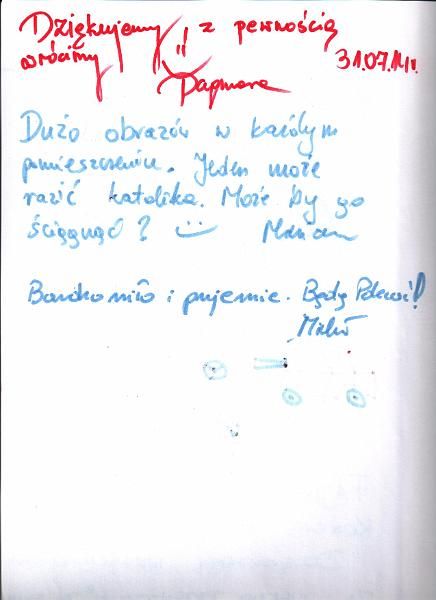 Dziękujemy !! z pewnością
wrócimy 31.07.14r.
Dagmara
Dużo obrazów w każdym
pomieszczeniu. Jeden może
razić katolika. Może by go
ściągnąć? Marian
Bardzo miło i przyjemnie. Będę Polecać!